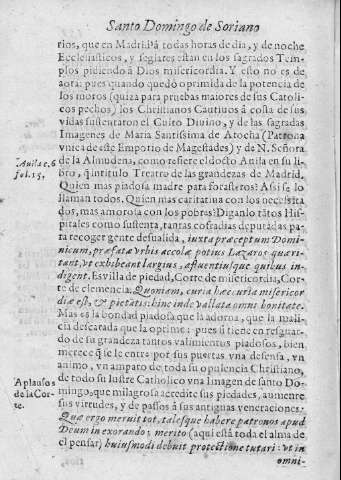 Santo Domingo de Soriano
rios, que en Madrid â todas horas de dia, y de noche
Eclesiasticos, y seglares estan en los sagrados Tem-
plos pidiendo â Dios misericordia. Y esto no es de
aora: pues quando quedò oprimida de la potencia de
los moros (quiza para pruebas maiores de sus Catoli-
cos pechos) los Christianos Cautivos â costa de sus
vidas sustentaron el Culto Divino, y de las sagradas
Imagenes de Maria Santissima de Atocha (Patrona
vnica de este Emporio de Magestades) y de N. Señora
Auila c. 6
fol. 15.
de la Almudena, como refiere el docto Auila en su li-
bro, q̃ intitulò Treatro de las grandezas de Madrid.
Quien mas piadosa madre para forasteros? Assi se lo
llaman todos. Quien mas caritatiua con los necessita
dos, mas amorosa con los pobres? Diganlo tãtos Hos-
pitales como sustenta, tantas cofradias deputadas pa-
ra recoger gente desualida, iuxta præceptum Domi-
nicum, præfata vrbis accolæ potius Lazaros quæri-
tant, vt exhibeant largius, affluentiusque quibus in-
digent. Es villa de piedad, Corte de misericordia, Cor-
te de clemencia. Quoniam, curia hæc curia misericor
diæ est, & pietatis: hinc inde vallata omni bonitate.
Mas es la bondad piadosa que la adorna, que la mali-
cia descarada que la oprime: pues si tiene en resguar-
do de su grandeza tantos valimientos piadosos, bien
merece q̃ se le entre por sus puertas vna defensa, vn
animo, vn amparo de toda su opulencia Christiano,
Aplausos
de la Cor-
te.
de todo su lustre Catholico vna Imagen de santo Do-
mingo, que milagrosa acredite sus piedades, aumente
sus virtudes, y de passos â sus antiguas veneraciones.
Quæ ergo meruit tot, talesque habere patronos apud
Deum in exorando; merito (aqui està toda el alma de
el pensar) huiusmodi debuit protectione tutari: vt in
omni-